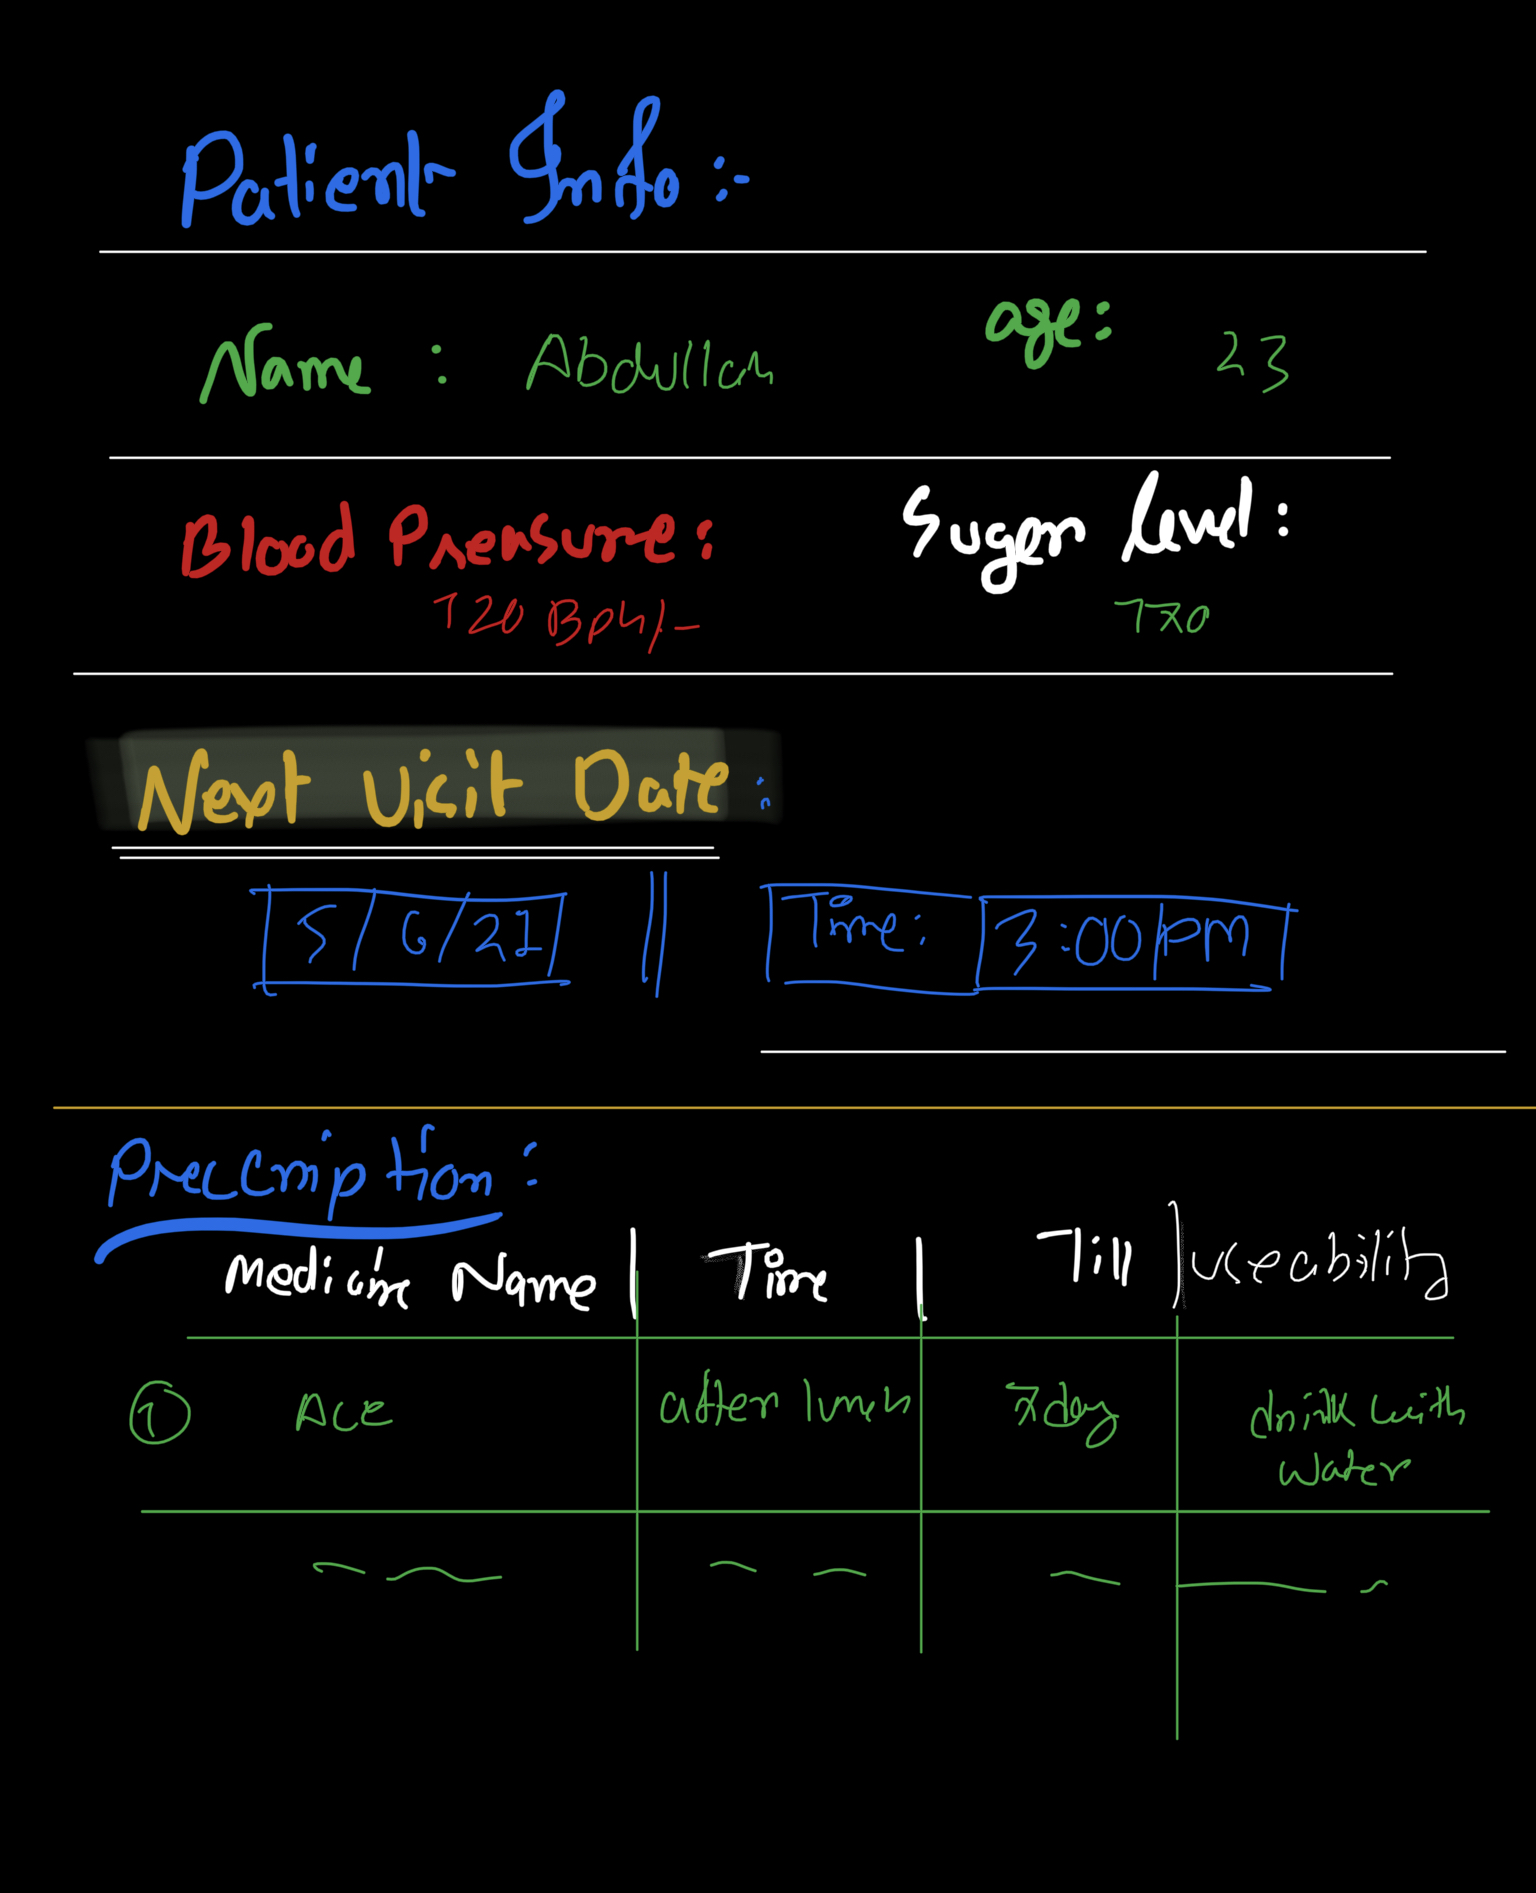 Patient Info :-
Name : Abdullah age: 23
Blood Pressure: Sugar level:
120 Bph/- 170
Next Visit Date :
5/6/21 || Time: 3:00 pm
Prescription :
Medicine Name | Time | Till | useability
1 Ace after lunch 7 day drink with
water